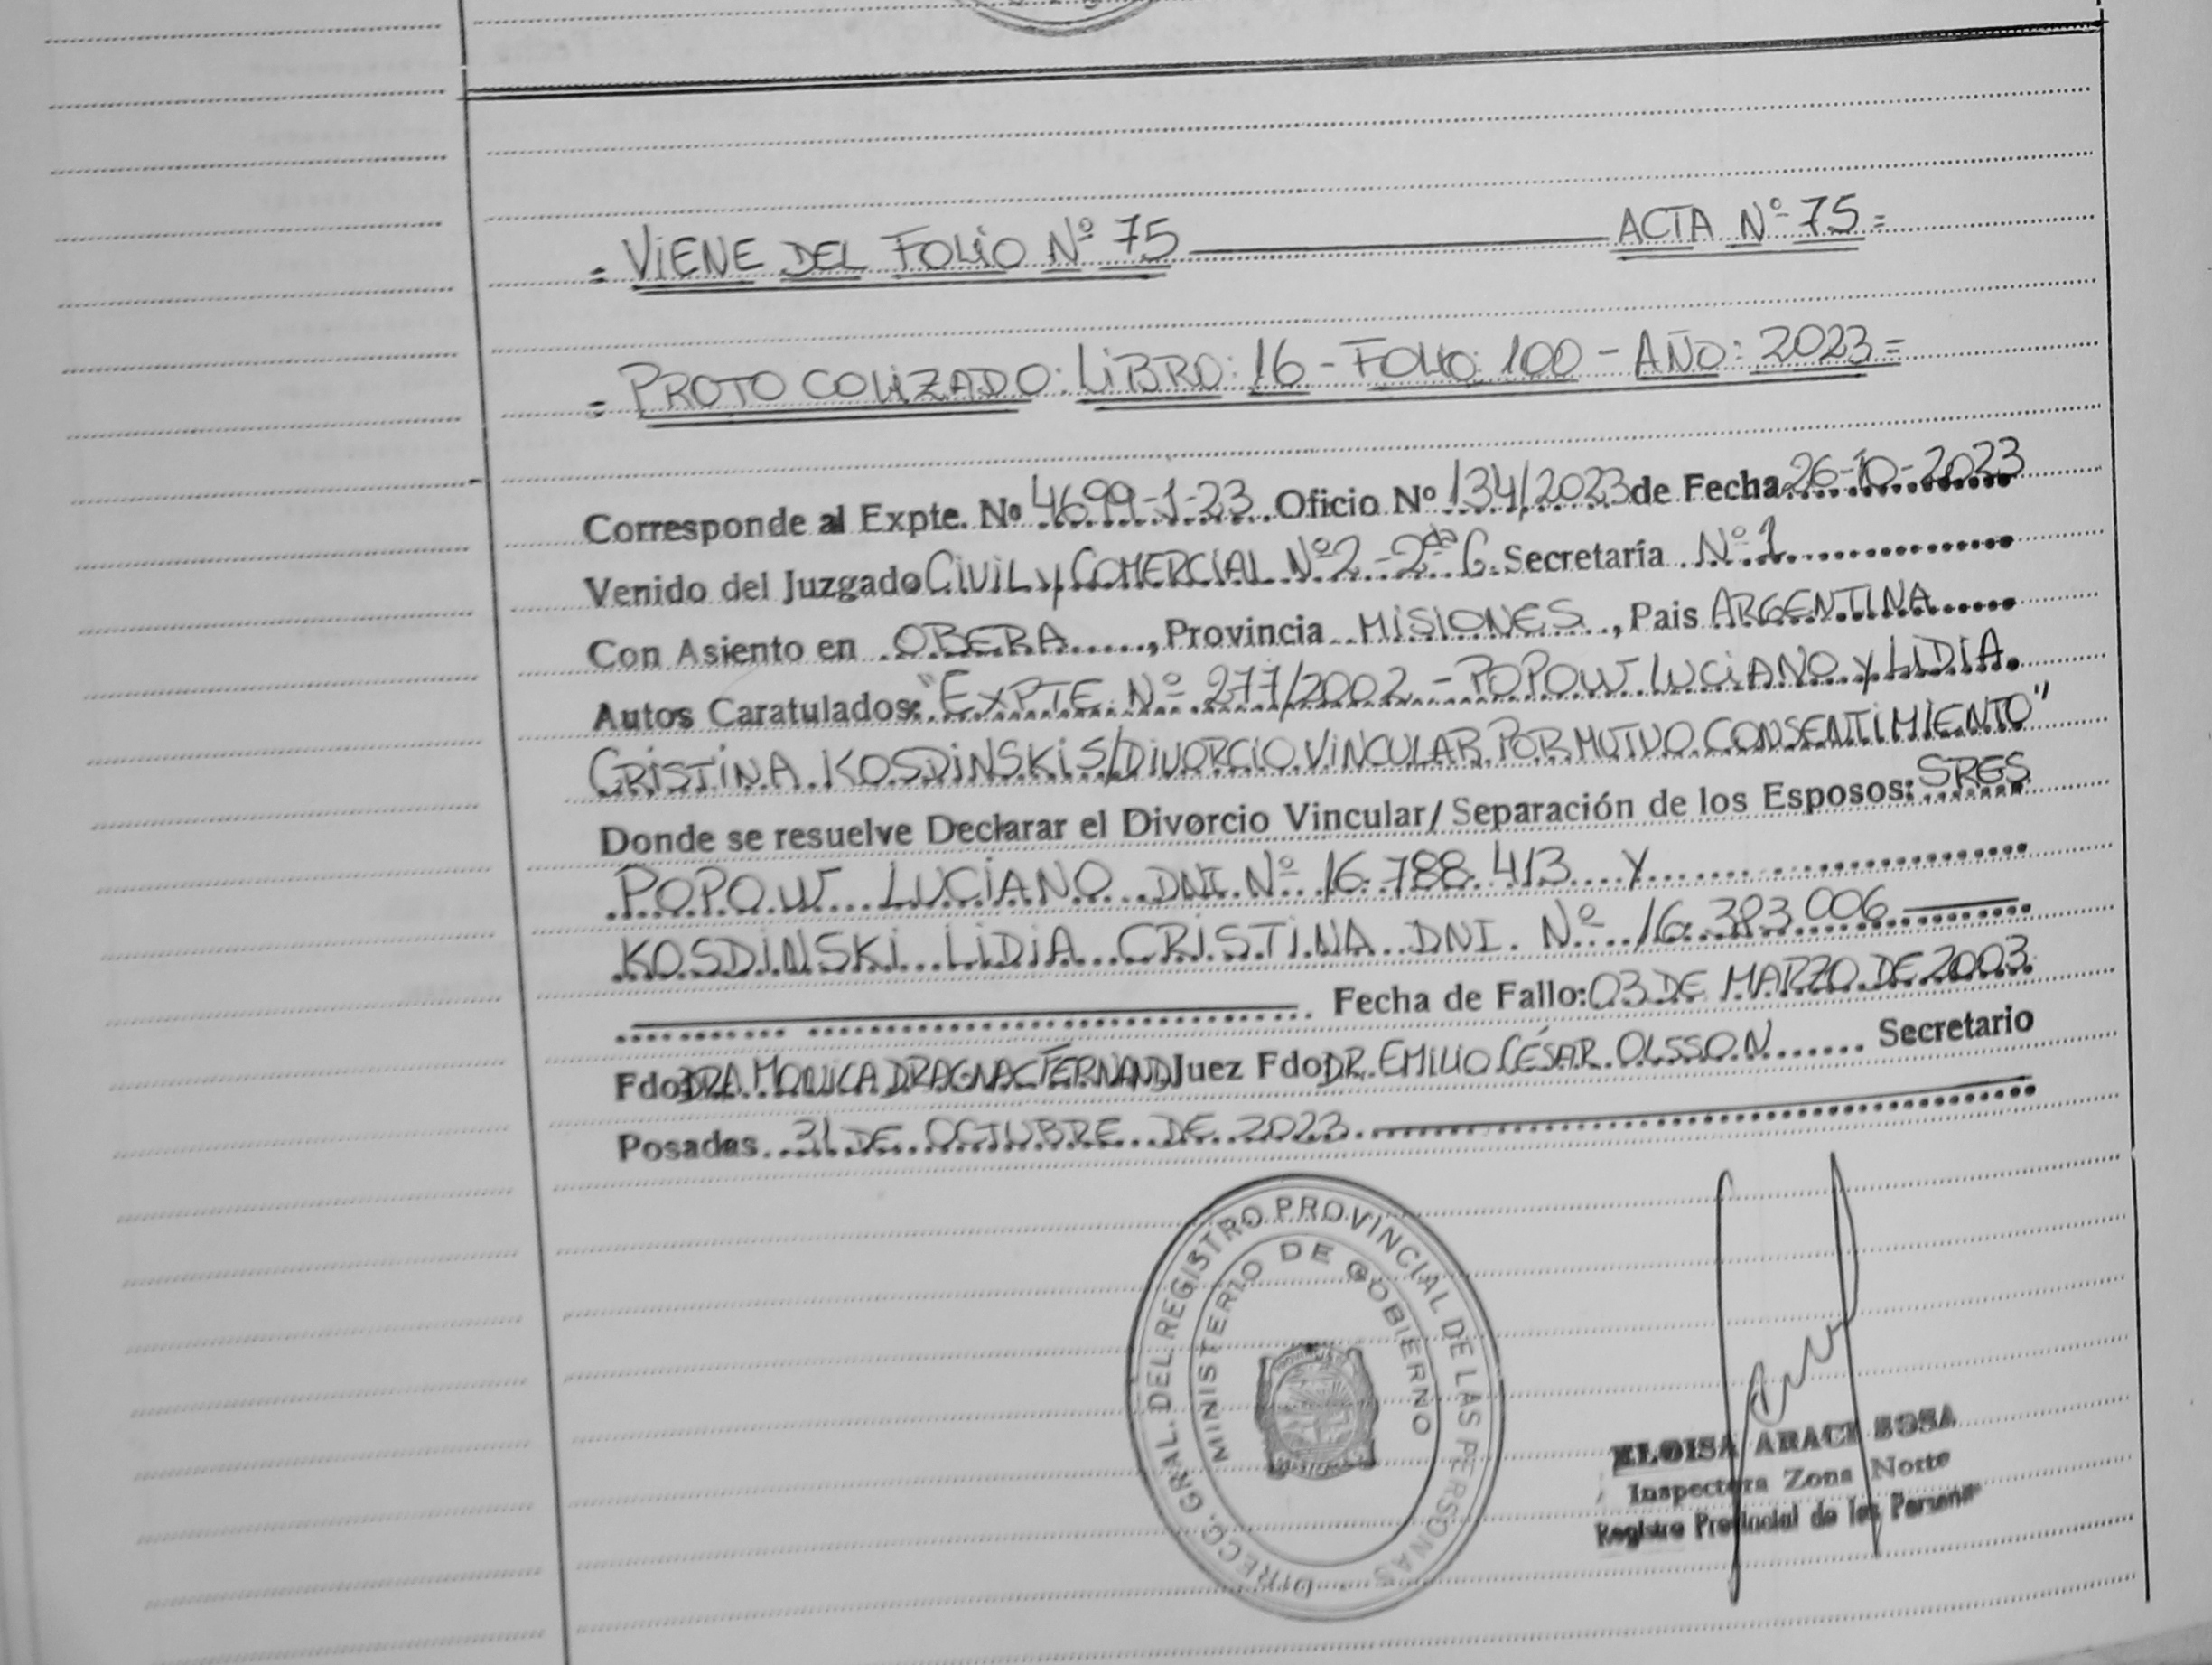 = VIENE DEL FOLIO Nº 75 ACTA Nº 75 =
= PROTOCOLIZADO: LIBRO: 16 - FOLIO: 100 - AÑO: 2023 =
Corresponde al Expte. Nº 4699-1-23 Oficio Nº 134/2023 de Fecha 26-10-2023
Venido del Juzgado CIVIL y COMERCIAL Nº2 - 2da C. Secretaría Nº 1
Con Asiento en OBERA, Provincia MISIONES, Pais ARGENTINA
Autos Caratulados: "EXPTE Nº 277/2002 - POPOW LUCIANO y LIDIA
CRISTINA KOSDINSKI S/DIVORCIO VINCULAR POR MUTUO CONSENTIMIENTO"
Donde se resuelve Declarar el Divorcio Vincular/ Separación de los Esposos: SRES
POPOW LUCIANO DNI Nº 16.788.413 Y
KOSDINSKI LIDIA CRISTINA DNI. Nº 16.383.006
Fecha de Fallo: 03 DE MARZO DE 2003.
Fdo DRA MONICA DRAGNAC FERNAND Juez Fdo DR. EMILIO CÉSAR OLSSON Secretario
Posadas 31 DE OCTUBRE DE 2023
DIRECC. GRAL. DEL REGISTRO PROVINCIAL DE LAS PERSONAS
MINISTERIO DE GOBIERNO
ELOISA ARACI SOSA
Inspectora Zona Norte
Registro Provincial de las Personas